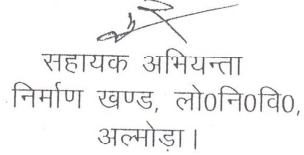 सहायक अभियन्ता
निर्माण खण्ड, लो0नि0वि0,
अल्मोड़ा।